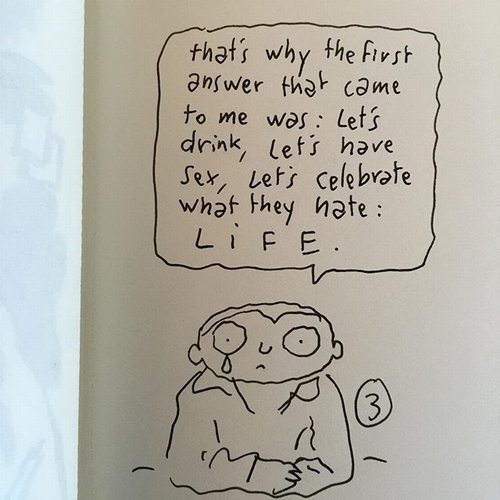 that's why the first
answer that came
to me was: Let's
drink, Let's have
sex, Let's celebrate
what they hate:
LiFE.
3